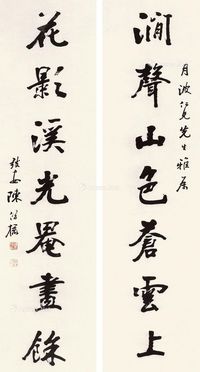 月波仁兄先生雅屬
澗聲山色蒼雲上
花影溪光罨畫餘
陳